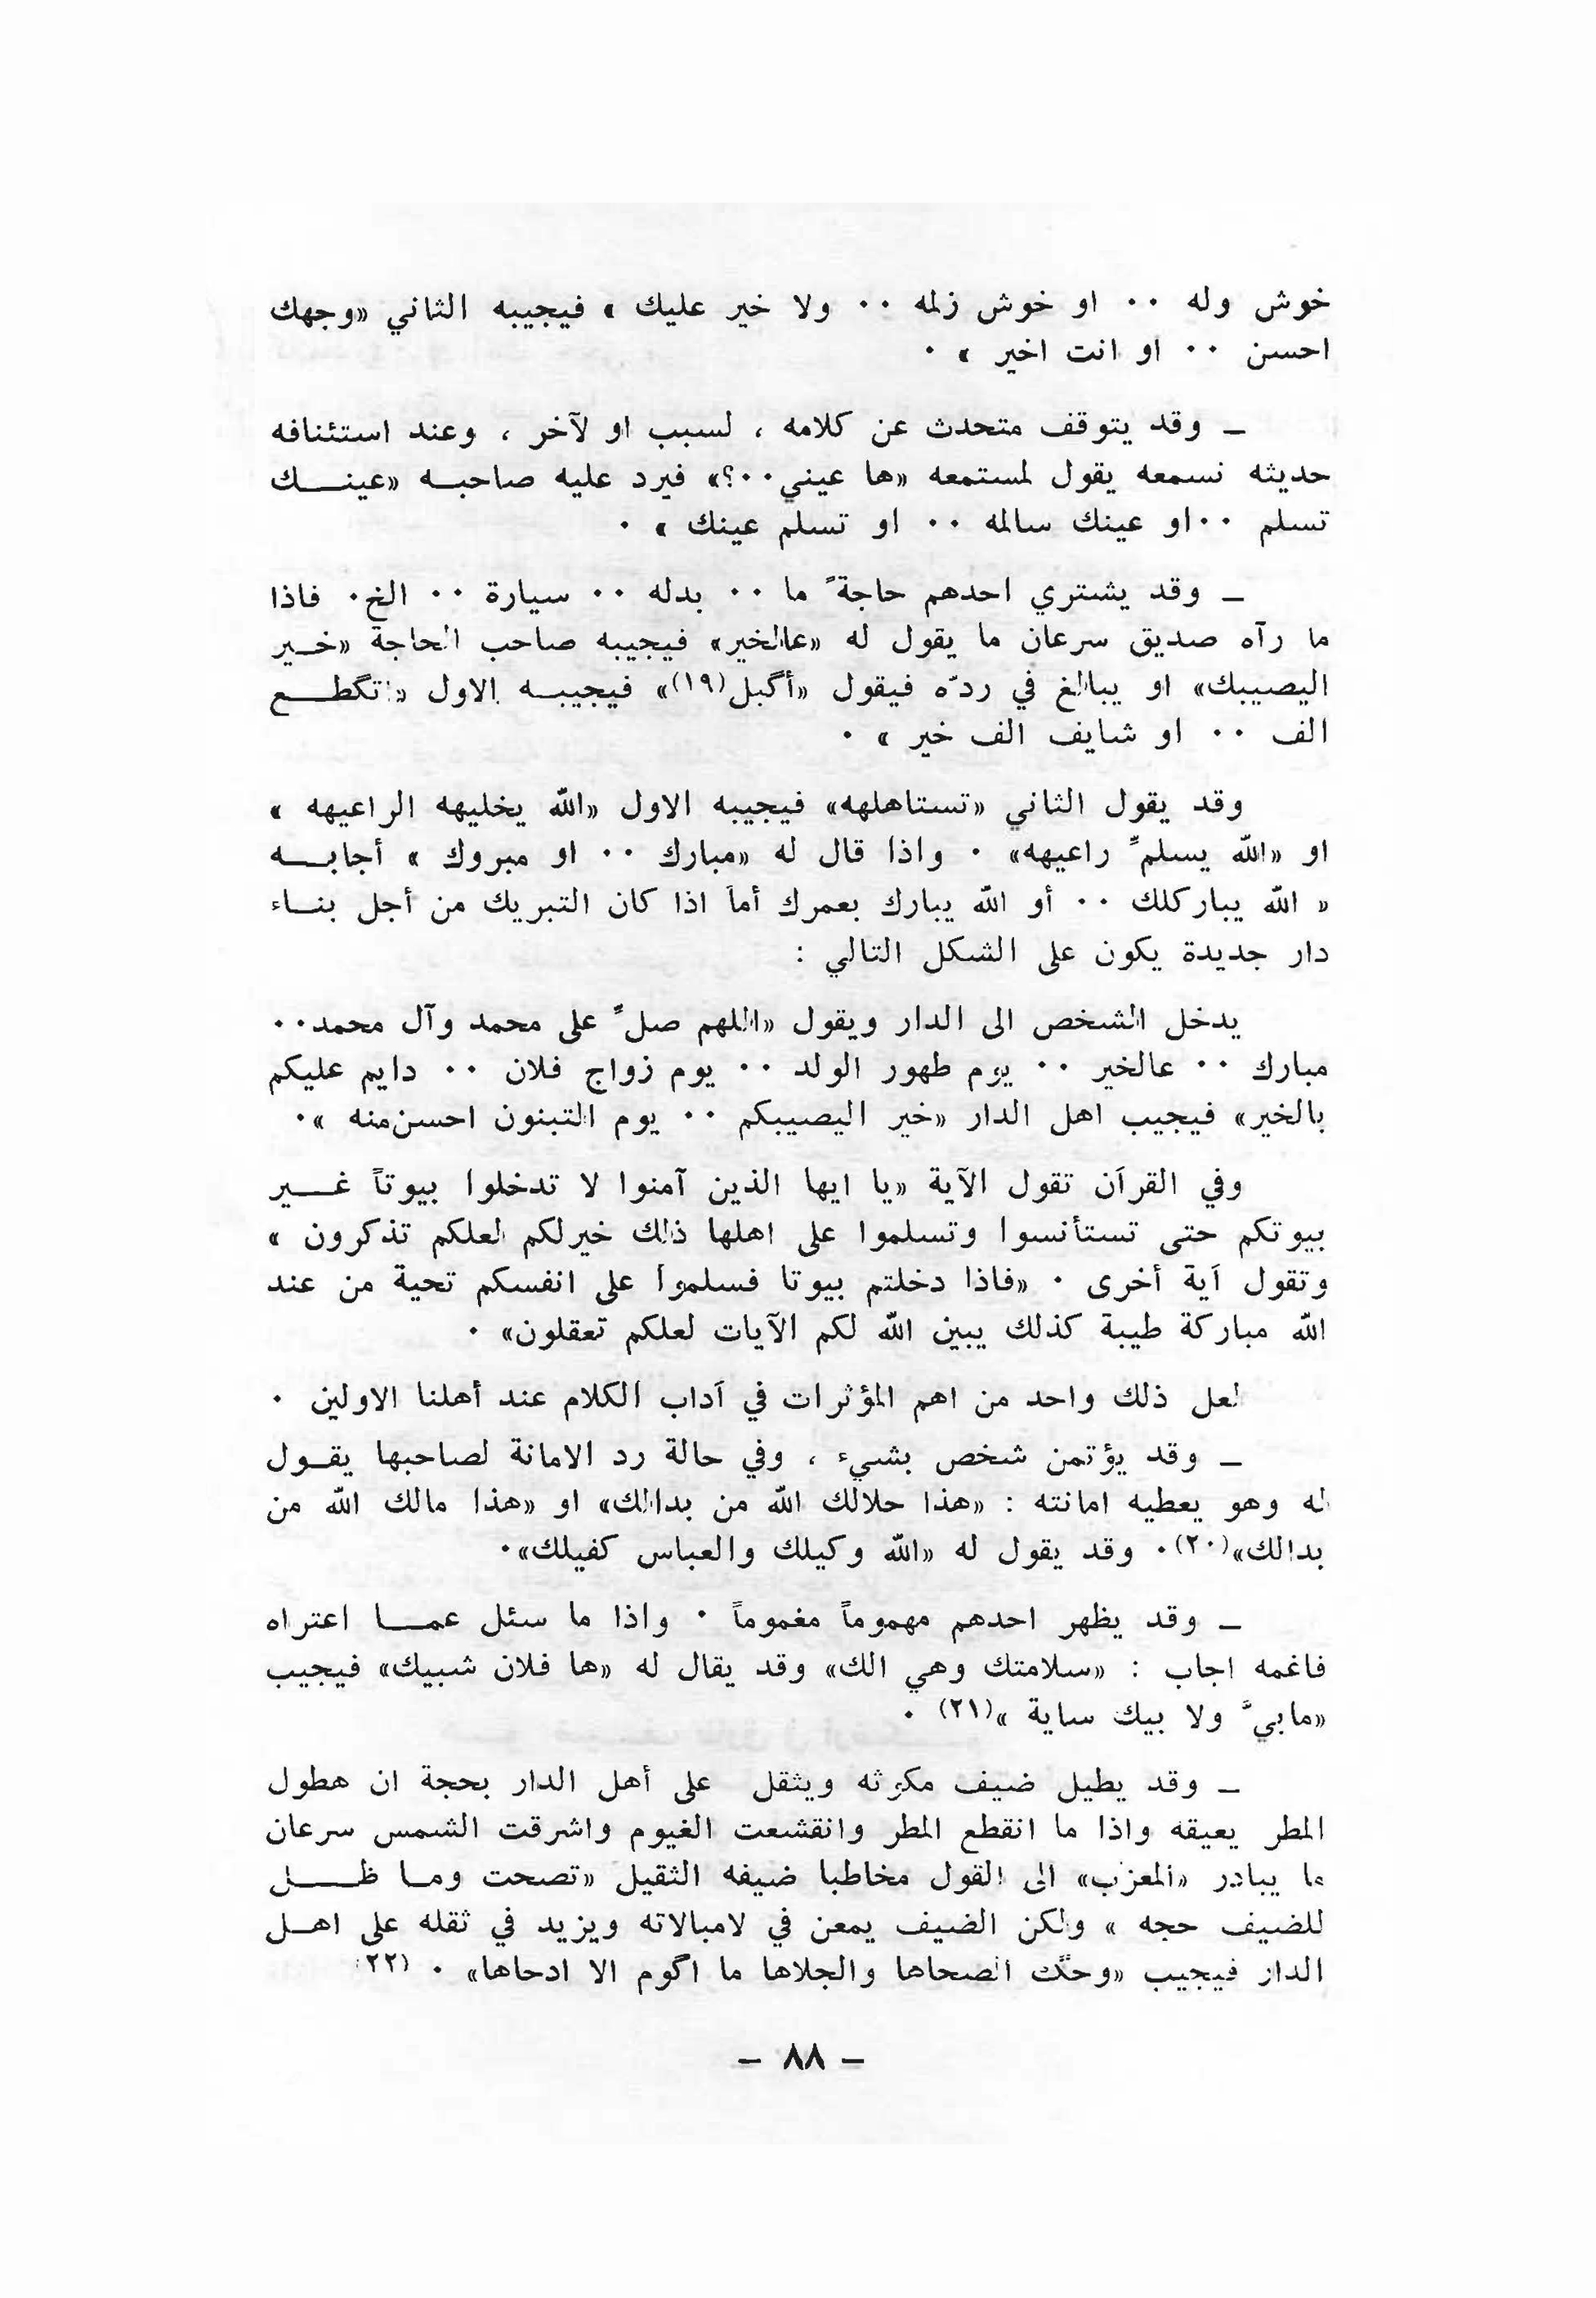 خوش وله ٠٠ او خوش زلمه ٠٠ ولا خير عليك » فيجيبه الثاني «وجهك
احسن ٠٠ او انت اخير » ٠
ـ وقد يتوقف متحدث عن كلامه ، لسبب او لآخر ، وعند استئنافه
حديثه نسمعه يقول لمستمعه «ها عيني٠٠؟» فيرد عليه صاحبـه «عينــك
تسلم ٠٠او عينك سالمه ٠٠ او تسلم عينك » ٠
ـ وقد يشتري احدهم حاجةً ما ٠٠ بدله ٠٠ سيارة ٠٠ الخ٠ فاذا
ما رآه صديق سرعان ما يقول له «عالخير» فيجيبه صاحب الحاجة «خـير
اليصيبك» او يبالغ في ردّه فيقول «أگبل(١٩)» فيجيبـه الاول «اتگطـع
الف ٠٠ او شايف الف خير » ٠
وقد يقول الثاني «تستاهلهه» فيجيبه الاول «الله يخليهه الراعيهه »
او «الله يسلمّ راعيهه» ٠ واذا قال له «مبارك ٠٠ او مبروك » أجابـه
« الله يباركلك ٠٠ أو الله يبارك بعمرك أما اذا كان التبريك من أجل بنـاء
دار جديدة يكون على الشكل التالي :
يدخل الشخص الى الدار ويقول «اللهم صلّ على محمد وآل محمد٠٠
مبارك ٠٠ عالخير ٠٠ يوم طهور الولد ٠٠ يوم زواج فلان ٠٠ دايم عليكم
بالخير» فيجيب اهل الدار «خير اليصيبكم ٠٠ يوم التبنون احسن منه »٠
وفي القرآن تقول الآية «يا ايها الذين آمنوا لا تدخلوا بيوتاً غــير
بيوتكم حتى تستأنسوا وتسلموا على اهلها ذلك خيرلكم لعلكم تذكرون »
وتقول آية أخرى ٠ «فاذا دخلتم بيوتا فسلموا على انفسكم تحية من عند
الله مباركة طيبة كذلك يبين الله لكم الآيات لعلكم تعقلون» ٠
لعل ذلك واحد من اهم المؤثرات في آداب الكلام عند أهلنا الاولين ٠
ـ وقد يؤتمن شخص بشيء ، وفي حالة رد الامانة لصاحبها يقـول
له وهو يعطيه امانته : «هذا حلالك الله من بدالك» او «هذا مالك الله من
بدالك»(٢٠)٠ وقد يقول له «الله وكيلك والعباس كفيلك»٠
ـ وقد يظهر احدهم مهموماً مغموماً ٠ واذا ما سئل عمــا اعتراه
فاغمه اجاب : «سلامتك وهي الك» وقد يقال له «ها فلان شبيك» فيجيب
«مابيّ ولا بيك ساية »(٢١) ٠
ـ وقد يطيل ضيف مكوثه ويثقل على أهل الدار بحجة ان هطول
المطر يعيقه واذا ما انقطع المطر وانقشعت الغيوم واشرقت الشمس سرعان
ما يبادر «المعزب» الى القول مخاطبا ضيفه الثقيل «تصحت ومـا ظــل
للضيف حجه » ولكن الضيف يمعن في لامبالاته ويزيد في ثقله على اهـل
الدار فيجيب «وحگ الصحاها والجلاها ما اگوم الا ادحاها» ٠ (٢٢)
ـ ٨٨ ـ